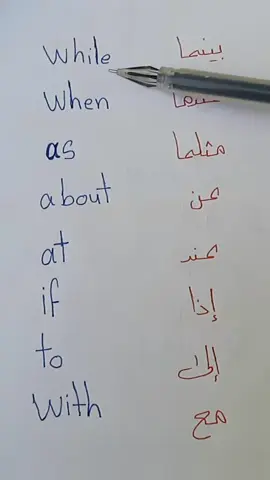 while بينما
when عندما
as مثلما
about عن
at عند
if إذا
to إلى
with مع